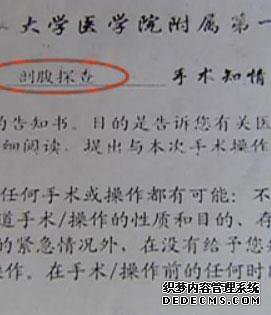 大学医学院附属第一
剖腹探查 手术知情
的告知书。目的是告诉您有关医
细阅读，提出与本次手术操作
任何手术或操作都有可能：不
道手术/操作的性质和目的、存
的紧急情况外，在没有给予您知
操作。在手术/操作前的任何时
织梦内容管理系统
DEDECMS.COM